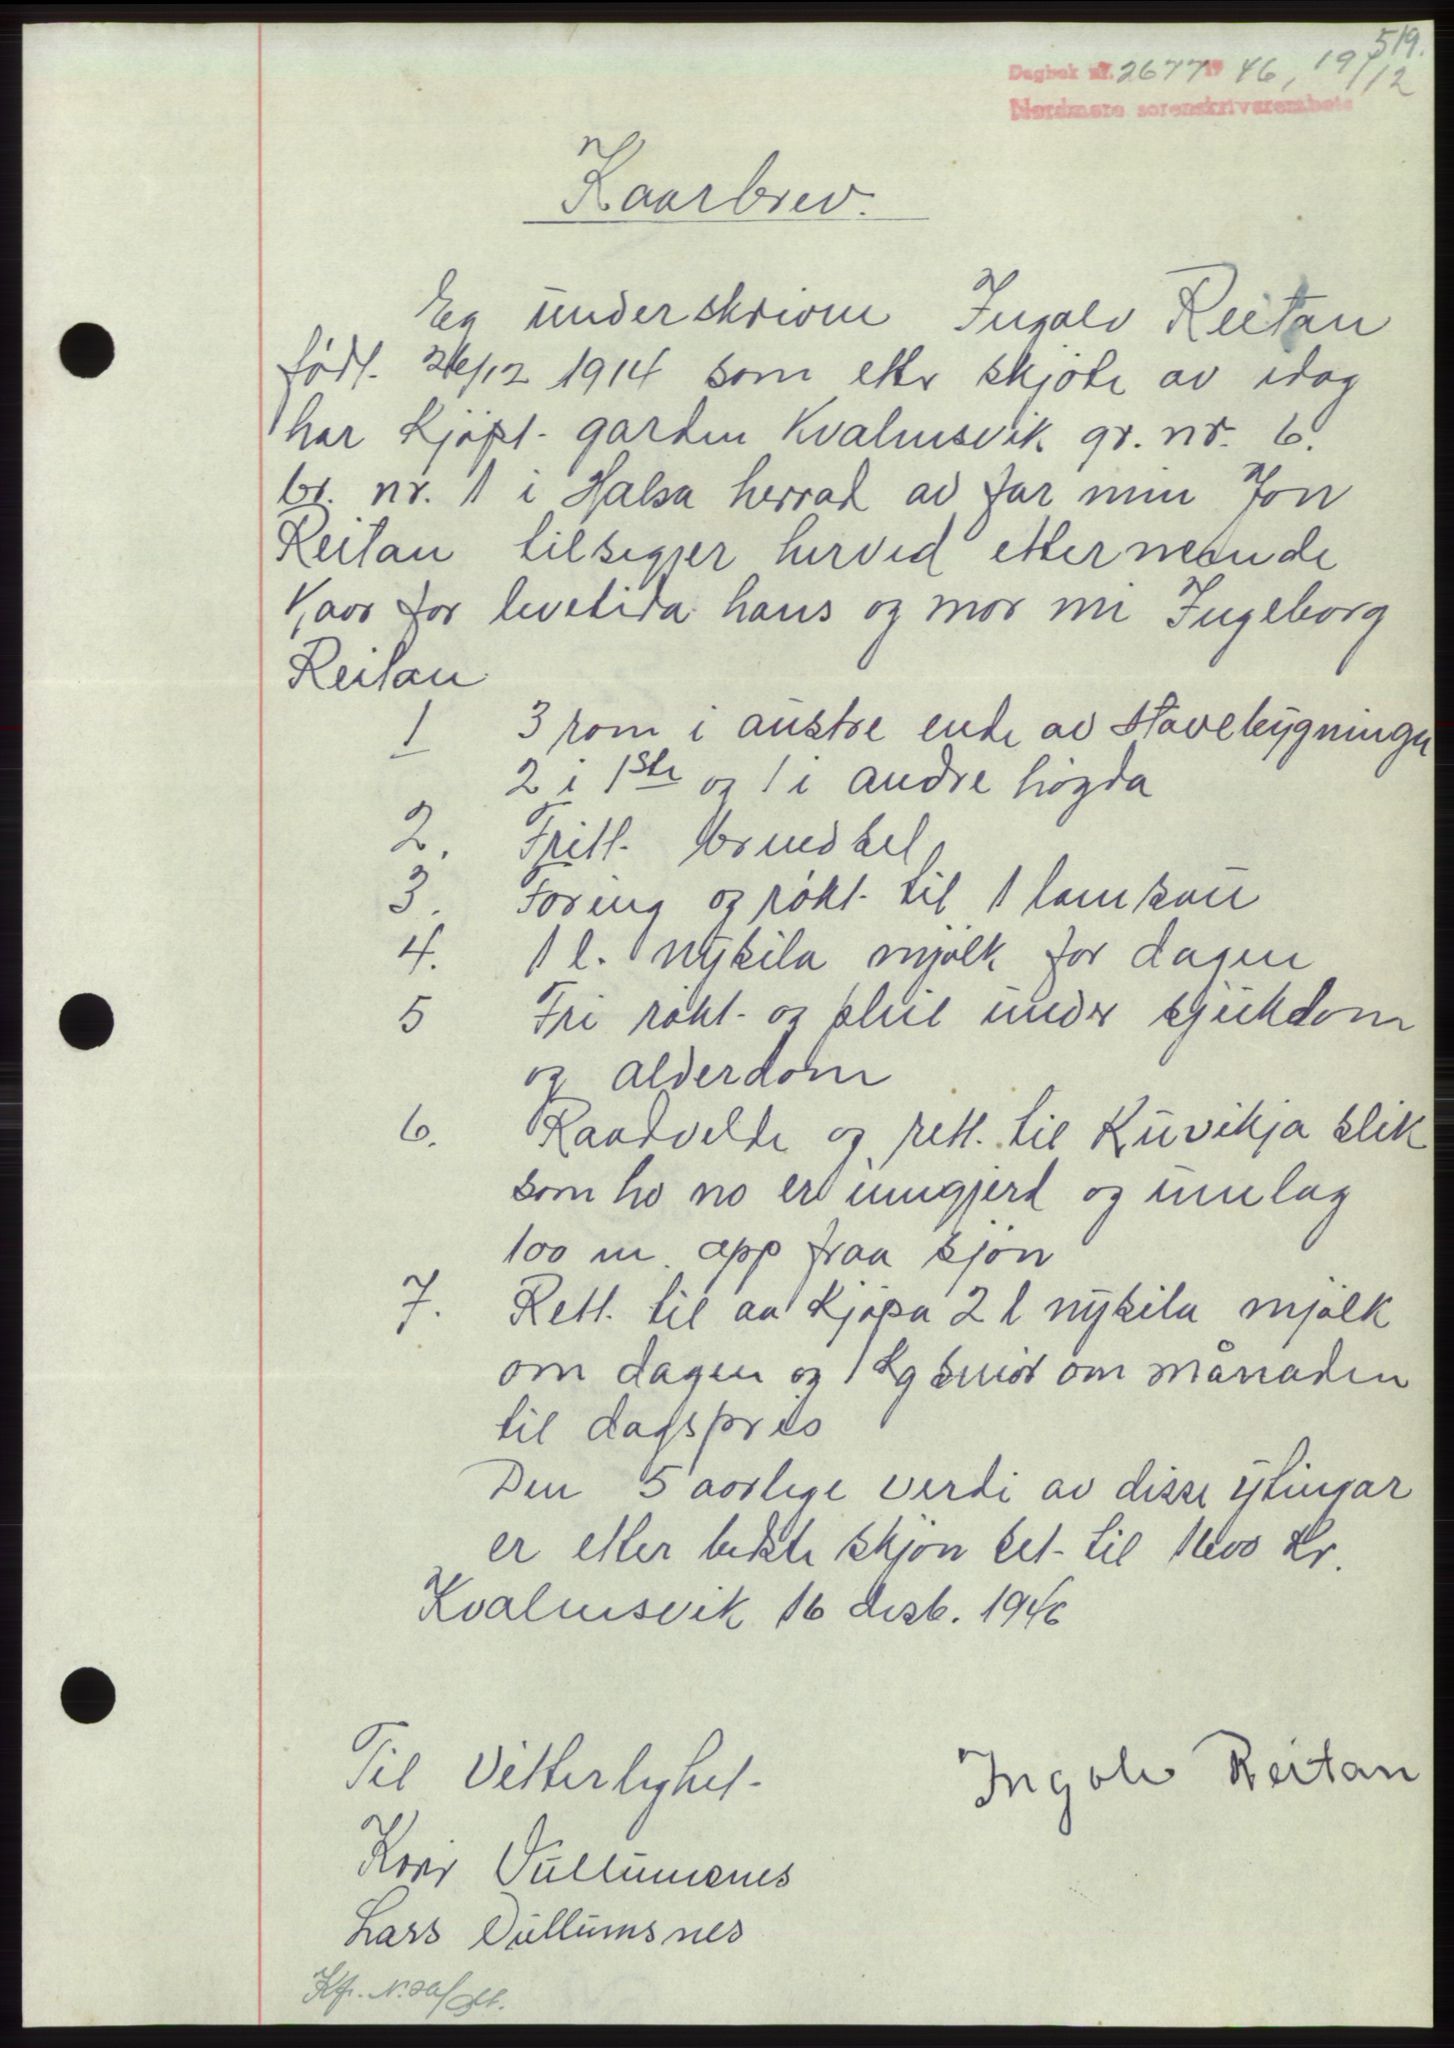 519.
Dagbok nr. 2677 19 46, 19/12
Nordmøre sorenskriverembete
Kaarbrev.
Eg underskrivne Ingolv Reitan
født 26/12 1914 som etter skjøte av idag
har kjøpt garden Kvalmsvik gr. nr. 6.
br. nr. 1 i Halsa herrad av far min Jon
Reitan tilsegjer herved etternemde
kaar for levetida hans og mor mi Ingeborg
Reitan
1 3 rom i austre ende av stovebygninga
2 i 1ste og 1 i andre høgda
2. Fritt brendsel
3. Foring og røkt til 1 lamsau
4. 1 l. nysila mjølk for dagen
5 Fri røkt og pleie under sjukdom
og alderdom
6. Raadvelde og rett til Kuvikja slik
som ho no er inngjerd og umlag
100 m. opp fraa sjøn
7. Rett til aa kjøpa 2 l nysila mjølk
om dagen og 1 kg smør om månaden
til dagspris
Den 5 aarlege verdi av disse ytingar
er etter beste skjøn set til 1600 kr.
Kvalmsvik 16 desb. 1946
Til Vitterlighet
Ingolv Reitan
Vullumsnes
Lars Vullumsnes
Kfr.